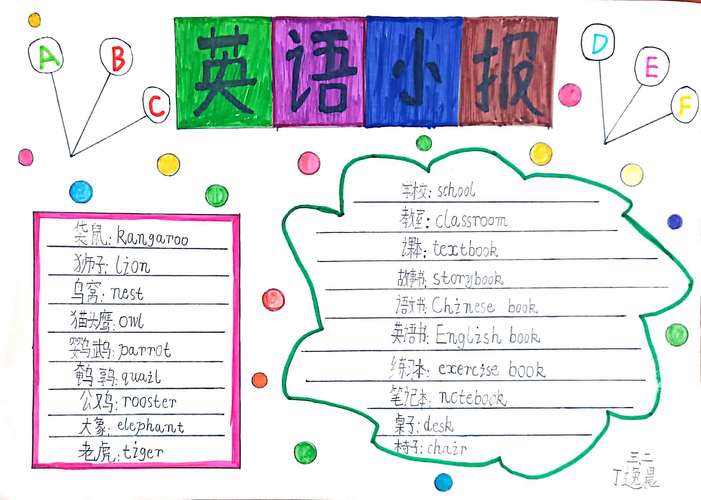 英语小报
A
B
C
D
E
F
袋鼠: kangaroo
狮子: lion
鸟窝: nest
猫头鹰: owl
鹦鹉: parrot
鹌鹑: quail
公鸡: rooster
大象: elephant
老虎: tiger
学校: school
教室: classroom
课本: textbook
故事书: storybook
语文书: Chinese book
英语书: English book
练习本: exercise book
笔记本: notebook
桌子: desk
椅子: chair
三、二
丁逸晨